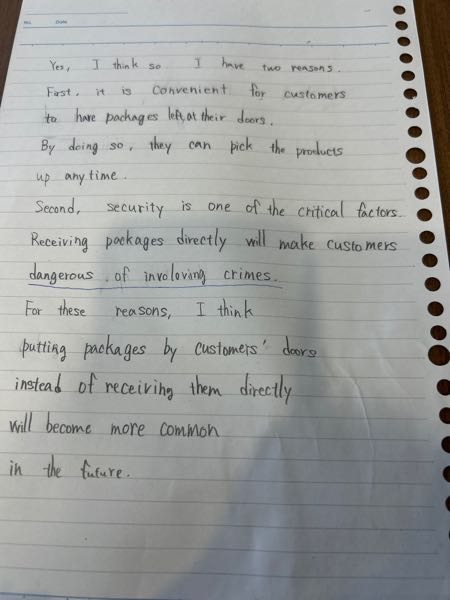 No.
Date
Yes, I think so I have two reasons.
First, it is convenient for customers
to have packages left at their doors.
By doing so, they can pick the products
up anytime.
Second, security is one of the critical factors.
Receiving packages directly will make customers
dangerous of involoving crimes.
For these reasons, I think
putting packages by customers' doors
instead of receiving them directly
will become more common
in the future.